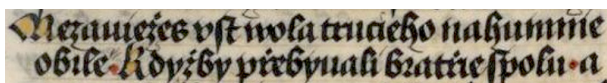 Nezawiežes vst wola trucieho nahumnie
obile · Kdyžby přebyuali bratrie spolu · a